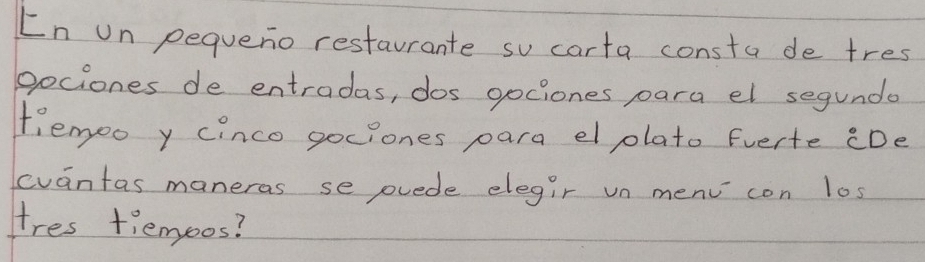 En un pequeño restaurante su carta consta de tres
opciones de entradas, dos opciones para el segundo
tiempo y cinco opciones para el plato fuerte ¿De
cuántas maneras se puede elegir un menú con los
tres tiempos?